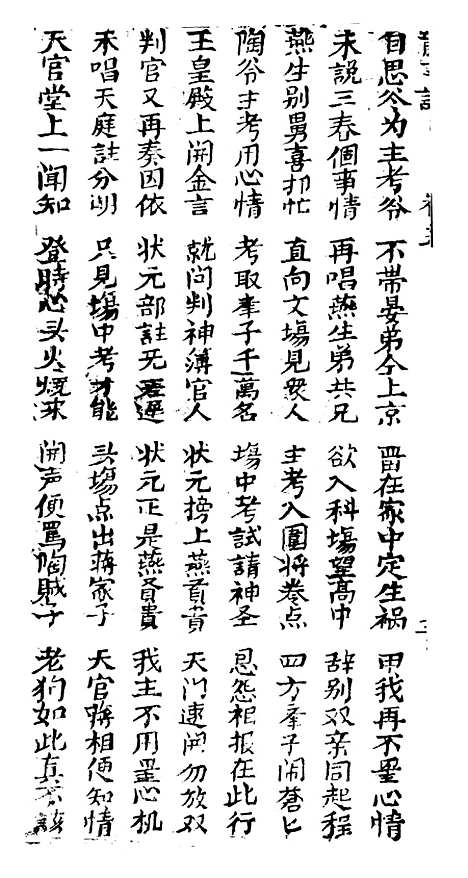 自思爷为主考爷 不帶晏弟今上京 畄在家中定生祸 用我再不墨心情
未說三春個事情 再唱燕生弟共兄 欲入科塲望高中 辞别双亲同起程
燕生别舅喜扣忙 直向文塲見衆人 主考入圍將卷点 四方峯子闹蒼匕
陶爷主考用心情 考取峯子千萬名 塲中考試請神圣 恩怨相报在此行
王皇殿上開金言 就问判神簿官人 状元榜上燕貢貴 天门速開勿放双
判官又再奏因依 状元部註无差遲 状元正是燕貢貴 我主不用墨心机
未唱天庭註分明 只見塲中考才能 头塲点出蒋家子 天官蒋相便知情
天官堂上一闻知 登時心头火烟来 開声便罵陶賊子 老狗如此真不該